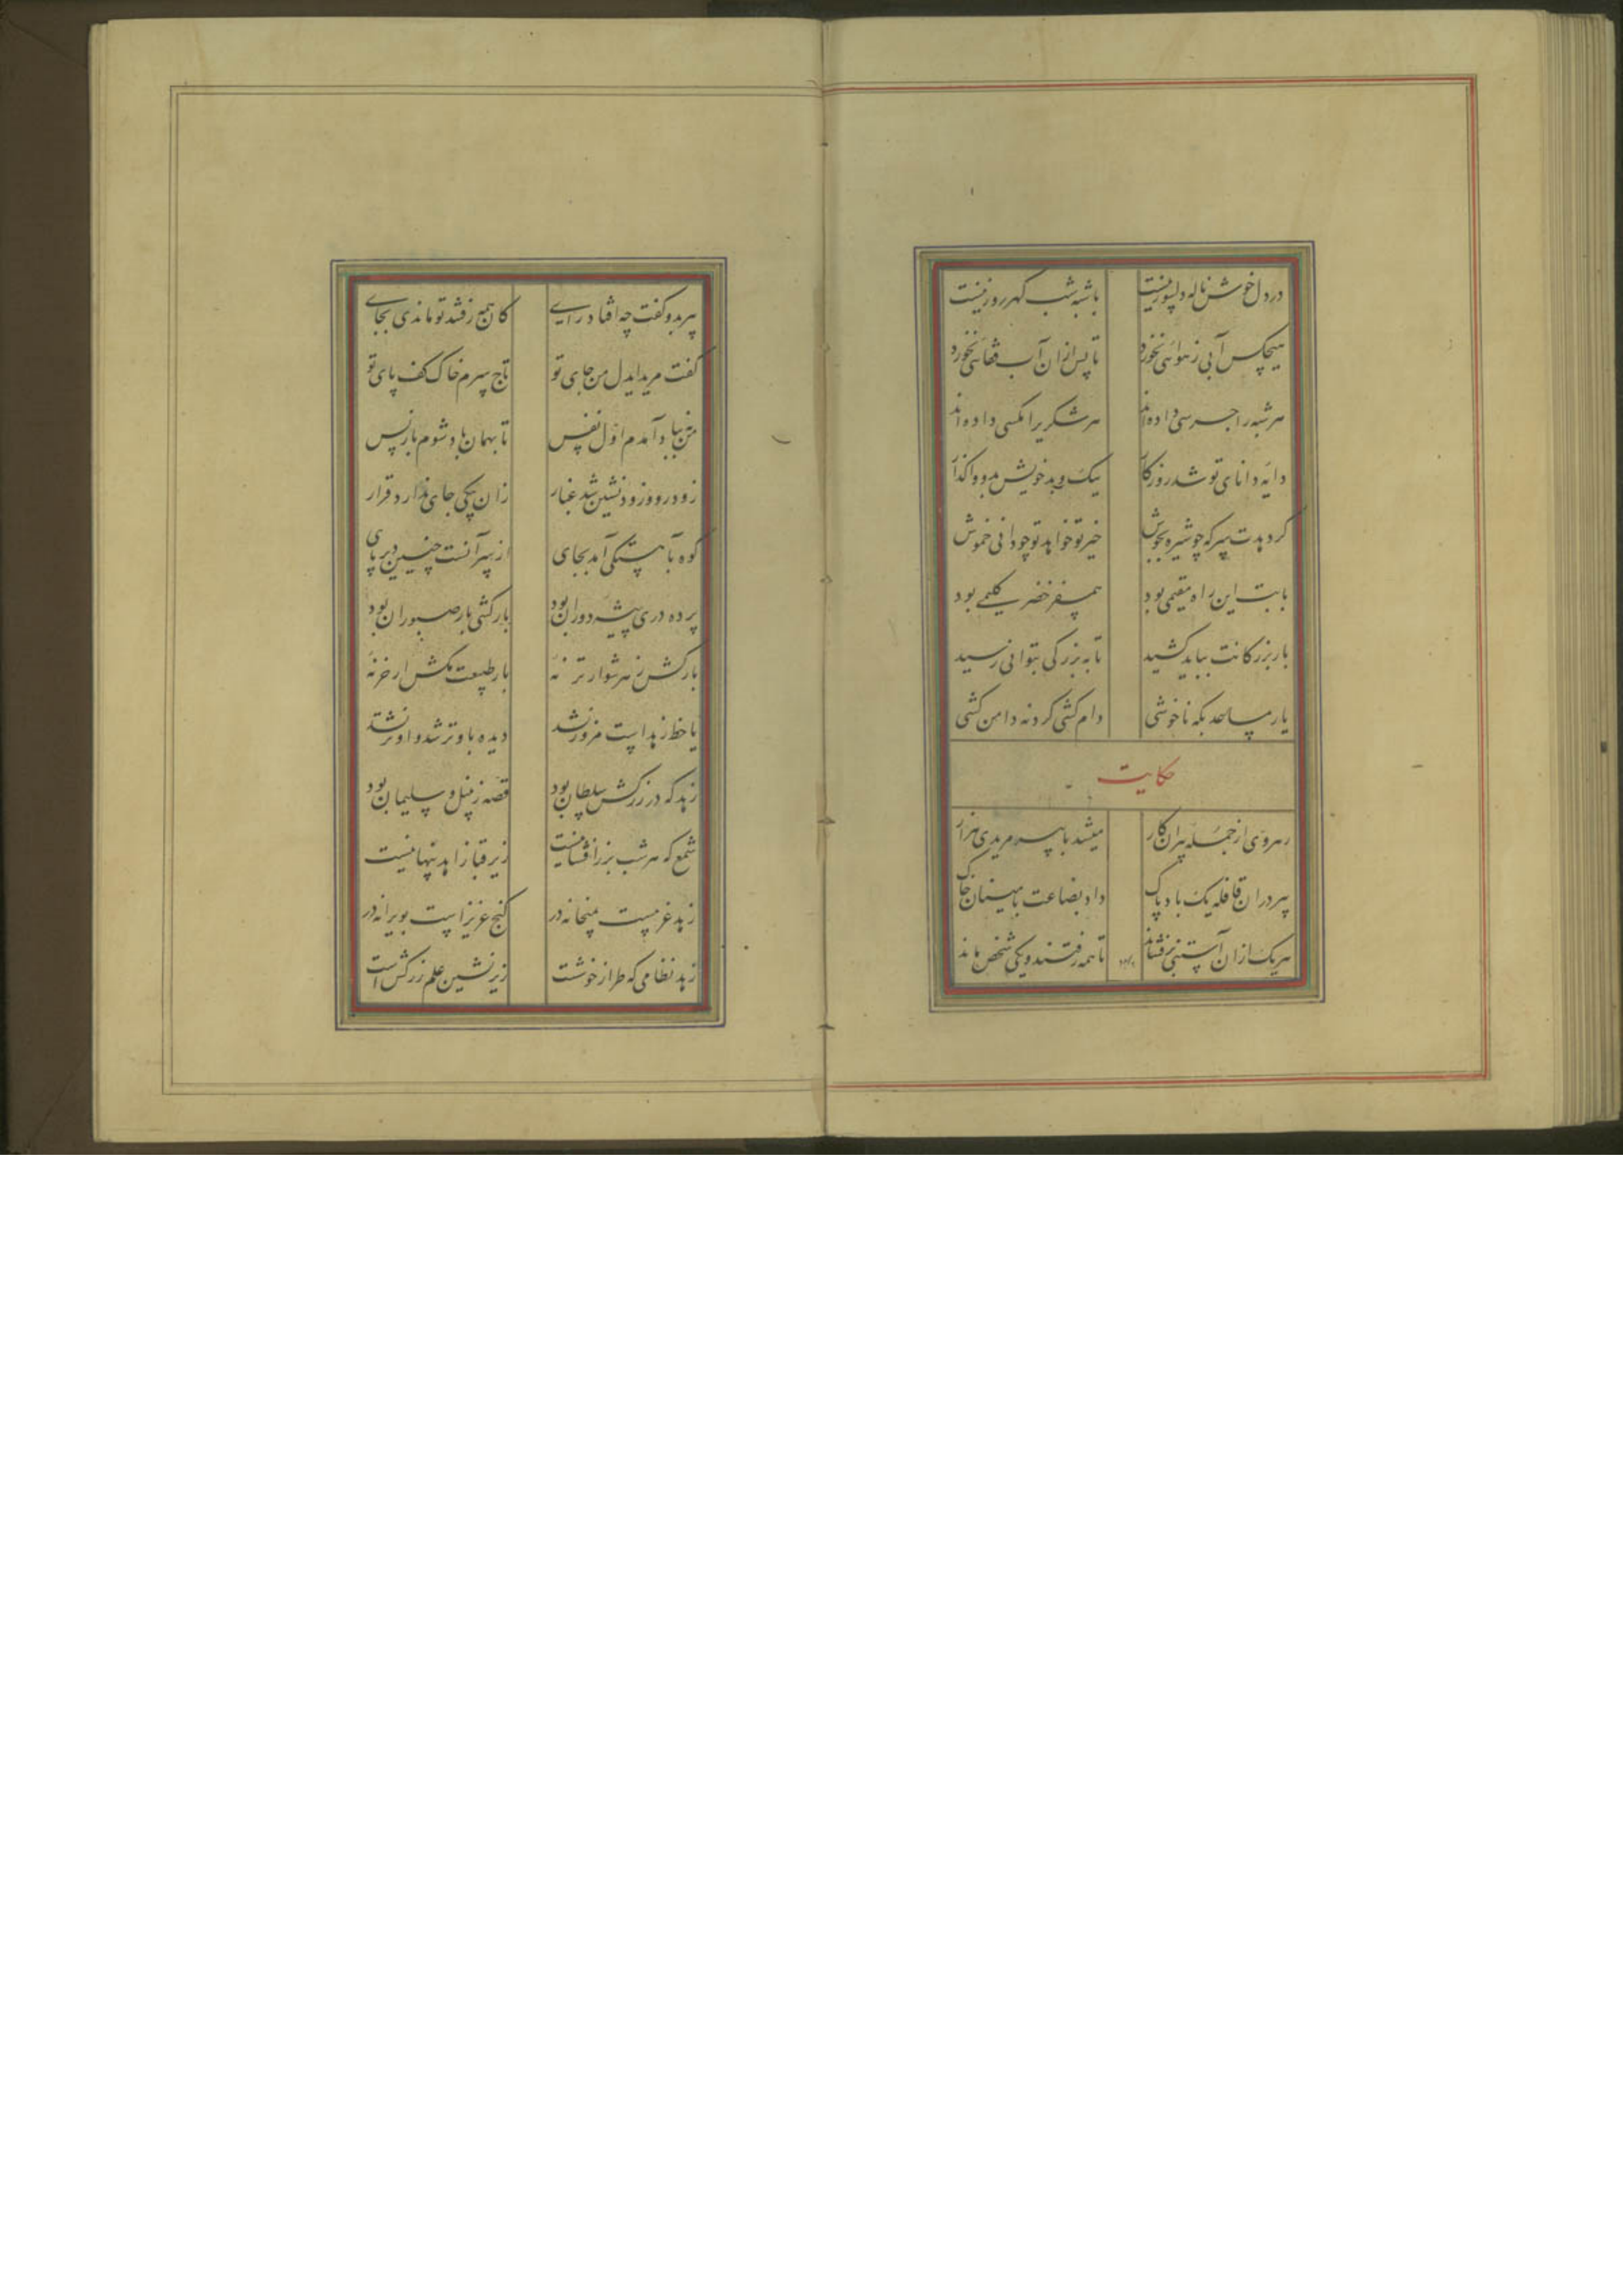 در دل خوش ناله دلسوز نیست
با شبه شب گهر روز نیست
هیچکس آبی ز هوائی نخورد
تا پس از آن آب قفائی نخورد
هر شبه را جرسی داده اند
هر شکریرا مکسی داده اند
دایه دانای تو شد روزکار
نیک و بد خویش بدو واکذار
کر دهدت سرکه چو شیره بجوش
خیر تو خواهد تو چو دانی خموش
بابت این راه مقیمی بود
همسفر خضر کلیمی بود
بار بزرکانت بباید کشید
تا به بزرکی بتوانی رسید
یار مساعد بکه ناخوشی
دام کشی کرد نه دامن کشی
حکایت
رهروی از جمله پیران کار
میشد با پیر مریدی هزار
پیر در ان قافله یک باد پاک
داد بضاعت بامینان خاک
هر یک از ان آستینی برفشاند
تا همه رفتند و یکی شخص ماند
پیر بدو گفت چه افتاد رای
کان همه رفتند تو ماندی بجای
کفت مرید ایدل من جای تو
تاج سرم خاک کف پای تو
من نه بباد آمدم اول نفس
تا بهمان باد شوم باز پس
زود رو و زود نشین شد غبار
زان یکی جای ندارد قرار
کوه بآهستکی آمد بجای
از سر آنست چنین دیر پای
پرده دری پیشه دوران بود
بار کشی بار صبوران بود
بارکش زهد شو ار تر نه
بار طبیعت مکش ار خر نه
یا خط زهد است مزور نشد
دیده باو تر شد و او تر نشد
زهد که در زرکش سلطان بود
قصه زنبیل و سلیمان بود
شمع که هر شب بزر افشانیست
زیر قبا زاهد پنهانیست
زهد غریبست میخانه در
کنج عزیز است بویرانه در
زهد نظامی که طراز خوشست
زیر نشین علم زرکش است